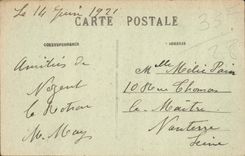 Le 14 Juin 1921
CARTE POSTALE
CORRESPONDANCE
ADRESSE
Amitiés de
Nogent
le Rotrou
M. May
Mlle Médie Pain
10 Rue Thomas
le Maître
Nanterre
Seine